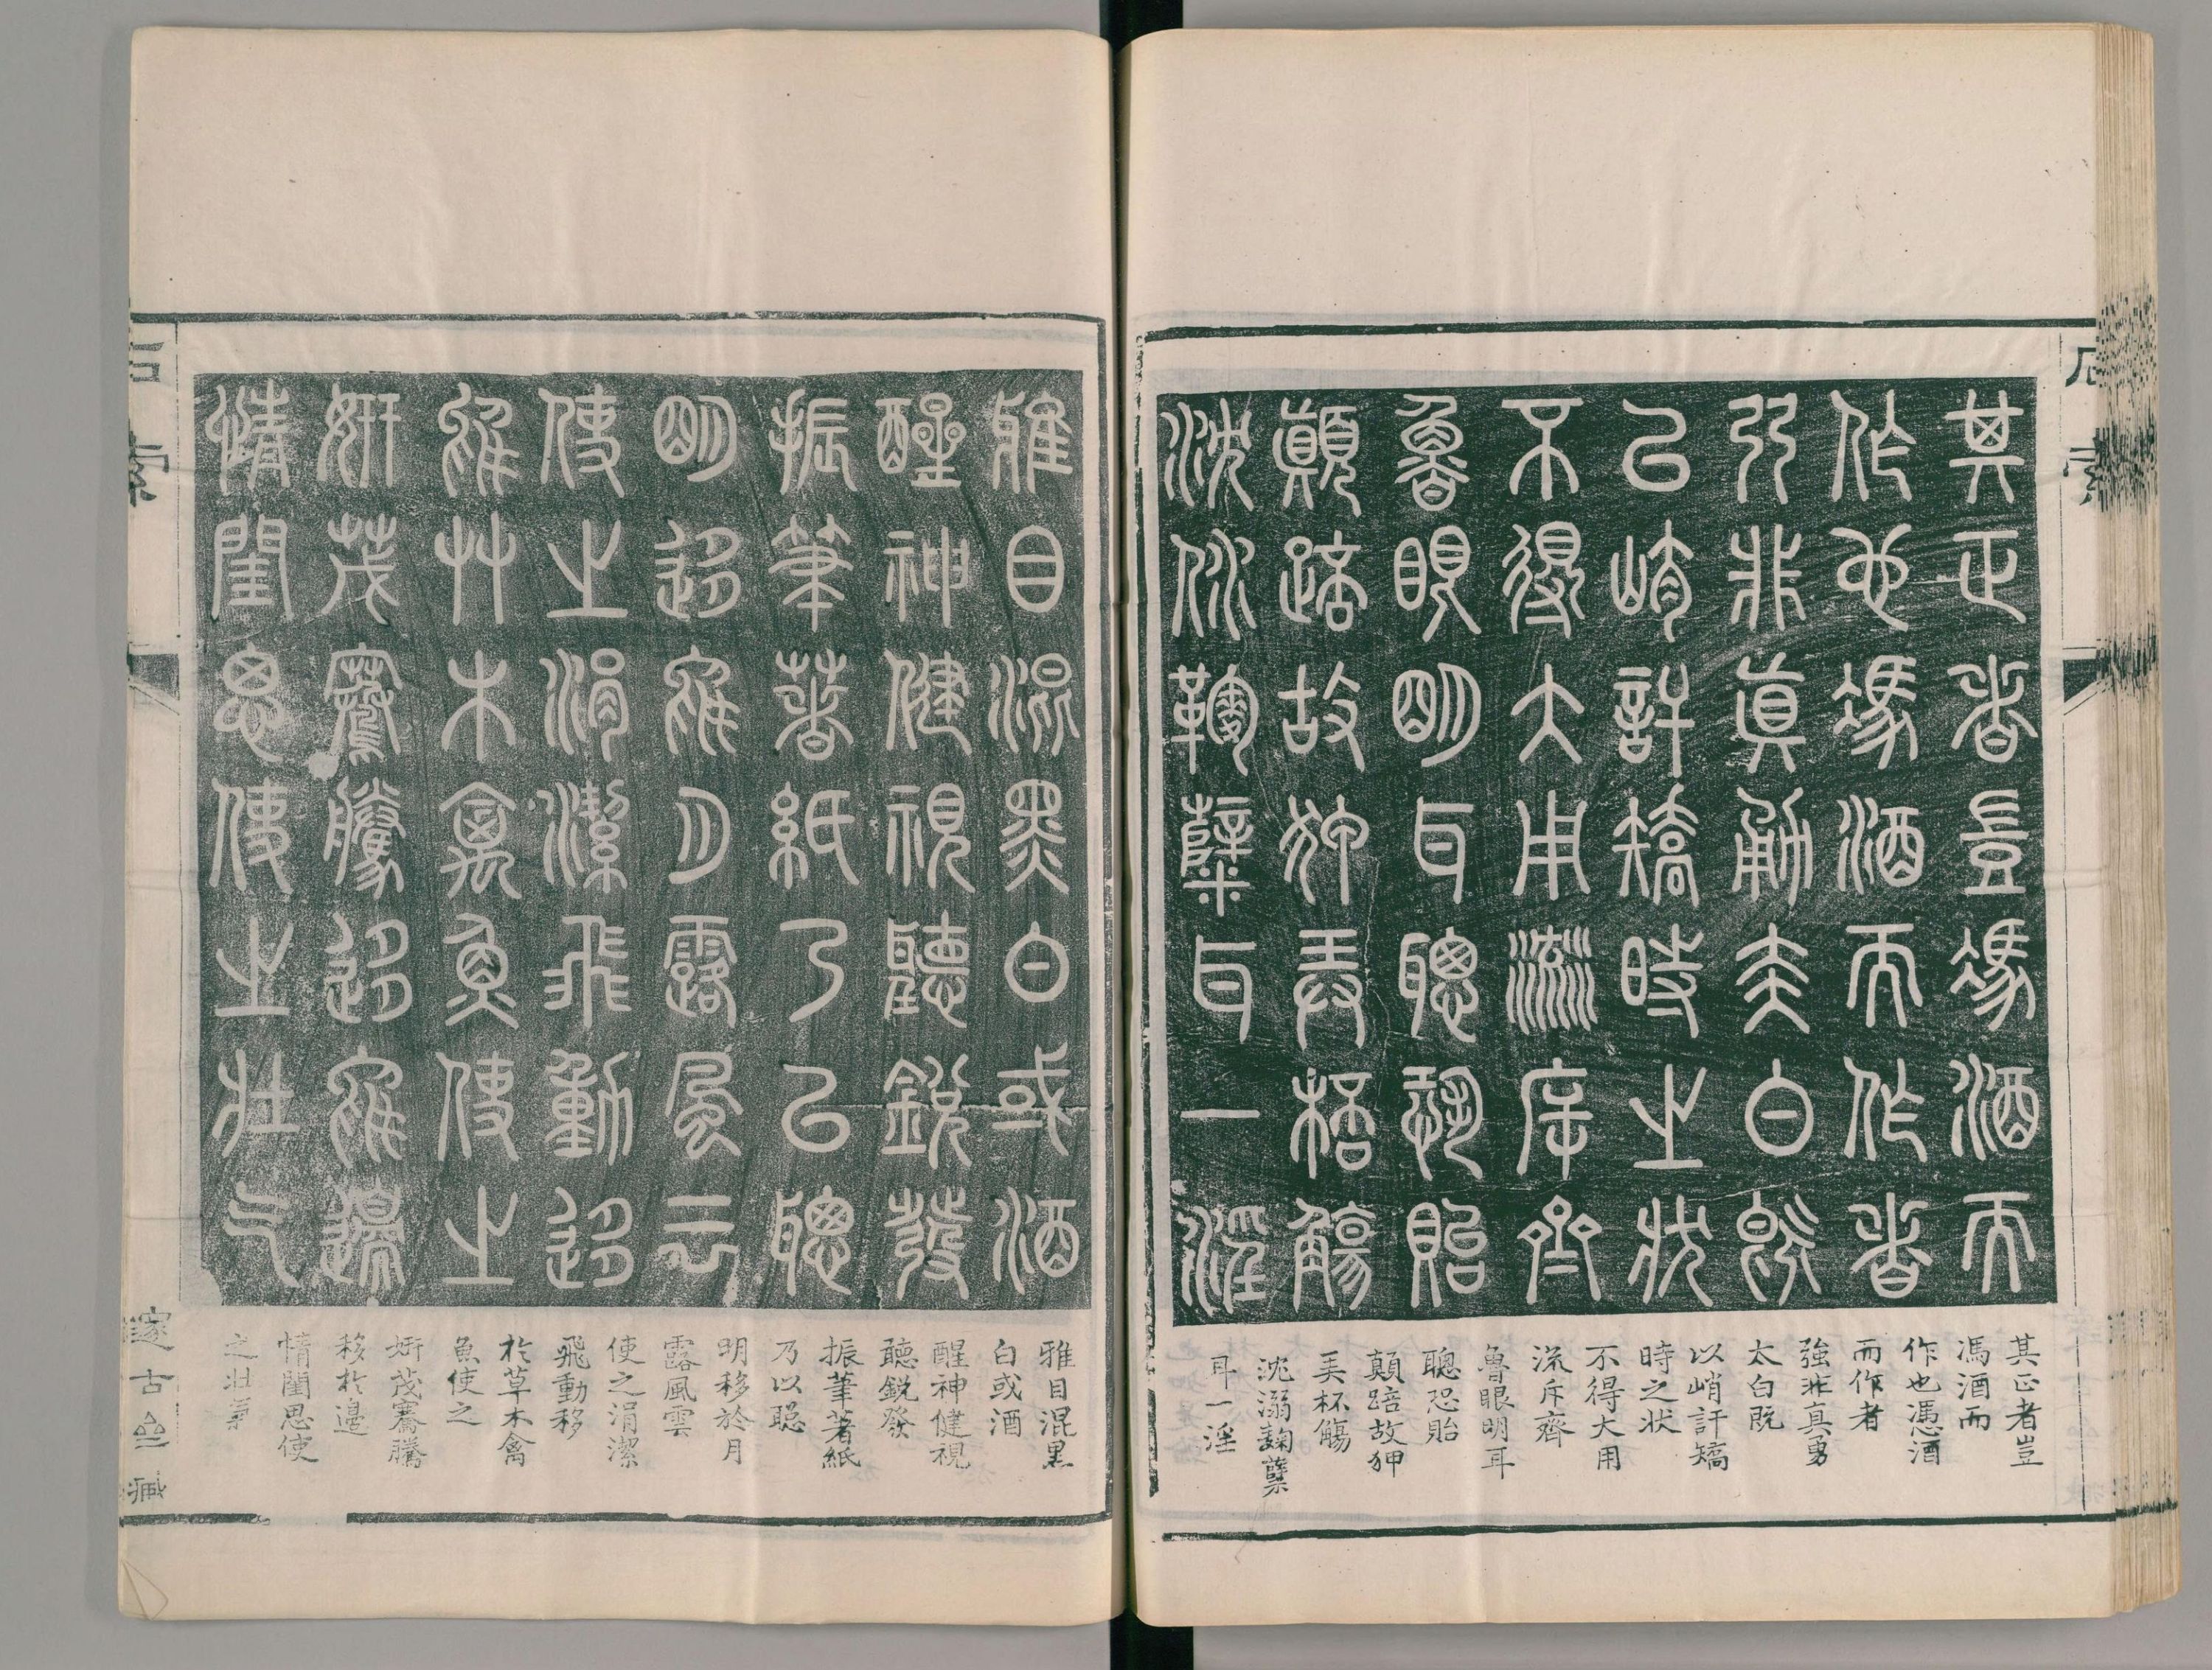 石索
其正者豈馮酒而
作也馮酒而作者
強非真勇太白既
以峭訐矯時之狀
不得大用流斥齊
魯眼明耳聰恐貽
顛踣故狎弄杯觴
沈溺麴糵耳一淫
其正者豈
馮酒而
作也憑酒
而作者
強非真勇
太白既
以峭訐矯
時之状
不得大用
流斥齊
魯眼明耳
聰恐貽
顛踣故狎
弄杯觴
沈溺麴糵
耳一淫
雅目混黑白或酒
醒神健視聽銳發
振筆著紙乃以聰
明移於月露風云
使之涓潔飛動移
於艸木禽魚使之
妍茂騫騰移於邊
情閨思使之壯气
雅目混黑
白或酒
醒神健視
聽銳發
振筆著紙
乃以聡
明移於月
露風雲
使之涓潔
飛動移
於草木禽
魚使之
妍茂騫騰
移於邉
情閨思使
之壯氣
石索
邃古齋藏